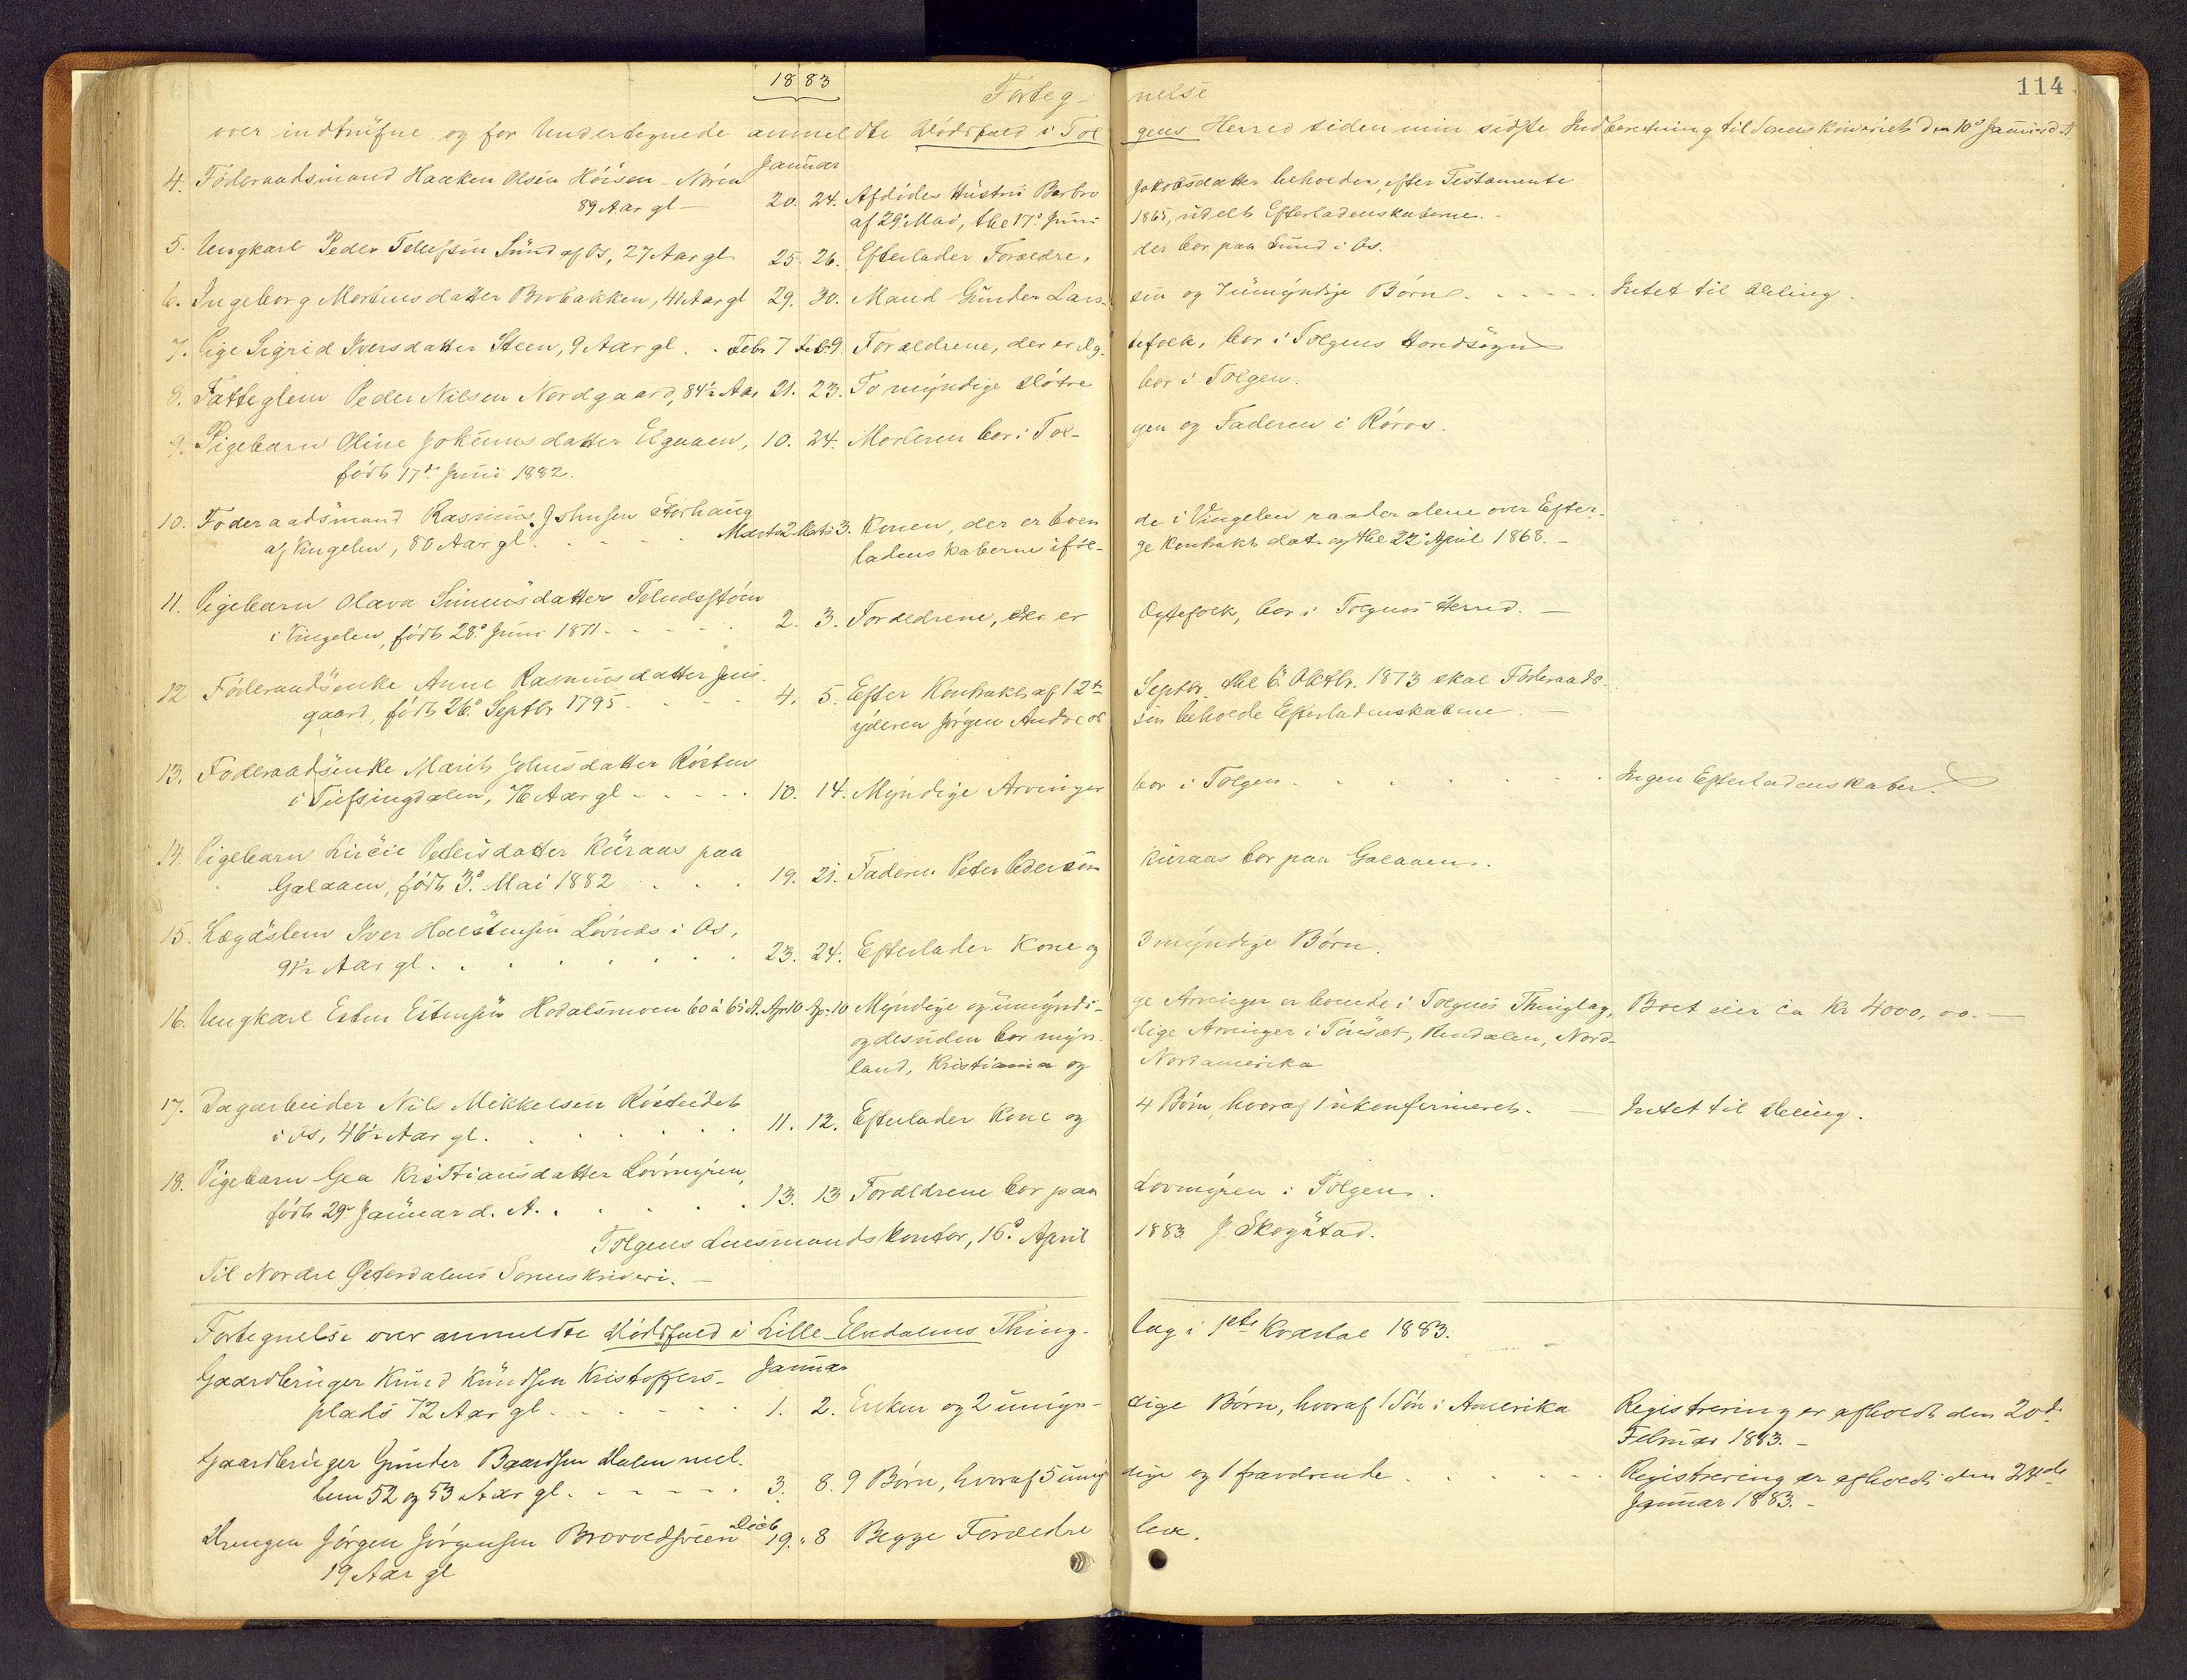 114
1883
Forteg- nelse
over indtrufne og for Undertegnede anmeldte Dödsfald i Tol gens Herred siden min sidste Indberetning til Sorenskriveriet den 10de Januar d. A.
Januar
4. Föderaadsmand Haaken Olsen 20. 24. Afdödes Hustru Barbro Jakobsdatter beholder, efter Testamente
89 Aar gl – af 29de Mai, thl 17de Juni 1865, udelt Efterladenskaberne. –
5. Ungkarl Peder Tollefsen Sund af Os, 27 Aar gl 25. 26. Efterlader Forældre, der bor paa Sund i Os.
6. Ingeborg Mortensdatter Brobakken, 41 Aar gl 29. 30. Mand Gunder Lars- sen og 7 umyndige Börn. - - - - - Intet til Deling.
7. Pige Sigrid Iversdatter Steen, 9 Aar gl. . Febr 7 Feb. 9. Forældrene, der er Æg- tefolk, bor i Tolgens Hovedsogn
8. Fatteglem Peder Nilsen Nordgaard, 84½ Aar 21. 23. To myndige Dötre bor i Tolgen.
9. Pigebarn Oline Jokumsdatter Elgaaen, 10. 24. Moderen bor i Tol- gen og Faderen i Röros.
födt 17de Juni 1882.
10. Föderaadsmand Rasmus Johnsen Storhaug Marts 2. Marts 3. Konen, der er boen de i Vingelen raader alene over Efter-
af Vingelen, 80 Aar gl. - - - - ladenskaberne iföl- ge Kontrakt dat. og thl 22de April 1868. –
11. Pigebarn Olava Simensdatter
i Vingelen, födt 28de Juni 1871 - - - - 2. 3. Forældrene, der er Ægtefolk, bor i Tolgens Herred. –
12. Föderaadsenke Anne Rasmusdatter Jons-
gaard, födt 26de Septbr 1795. - - - 4. 5. Efter Kontrakt af 12te Septbr. thl 6te Oktbr. 1873 skal Föderaads-
yderen Jörgen sen beholde Efterladenskaberne. –
13. Föderaadsenke Marit Johnsdatter Rösten
i Tufsingdalen, 76 Aar gl - - - - - 10. 14. Myndige Arvinger bor i Tolgen. - - - - Ingen Efterladenskaber.
14. Pigebarn Lucie Pedersdatter Kuraas paa
Galaaen, födt 3de Mai 1882 . . . 19. 21. Faderen Peder Pedersen Kuraas bor paa Galaaen.
15. Lægdslem Iver Halstensen i Os,
91½ Aar gl. . . . . . . 23. 24. Efterlader Kone og 3 myndige Börn.
16. Ungkarl Esten Estensen Hodalsmoen 60 à 65 A. Apr 10 Apr. 10 Myndige og umyndi- ge Arvinger er boende i Tolgens Thinglag, Boet eier ca Kr 4000,00. –
og desuden bor myn- dige Arvinger i Tönsæt, Rendalen, Nord-
land, Kristiania og Nordamerika
17. Dagarbeider Nils Mikkelsen Röseidet
i Os, 46½ Aar gl. . . . . . 11. 12. Efterlader Kone og 4 Börn, hvoraf 1 ukonfirmeret. – Intet til Deling.
18. Pigebarn Gea Kristiansdatter Lovmyren,
födt 29de Januar d. A. . . . . . 13. 13 Forældrene bor paa Lovmyren i Tolgen.
Tolgens Lensmandskontor, 16de April 1883 J. Skogstad.
Til Nordre Österdalens Sorenskriveri. –
Fortegnelse over anmeldte Dödsfald i Lille-Elvedalens Thing- lag i 1ste Kvartal 1883.
Januar
Gaardbruger Knud Knudsen Kristoffers-
plads 72 Aar gl. - - - - - 1. 2. Enken og 2 umyn- dige Börn, hvoraf 1 Sön i Amerika Registrering er afholdt den 20de
Februar 1883. –
Gaardbruger Gunder Baardsen Dalen mel-
lem 52 og 53 Aar gl. - - - - - 3. 8. 9 Börn, hvoraf 5 umyn dige og 1 fraværende . - - - - Registrering er afholdt den 24de
Januar 1883. –
Drengen Jörgen Jörgensen Decb. 19. " 8 Begge Forældre leve.
19 Aar gl